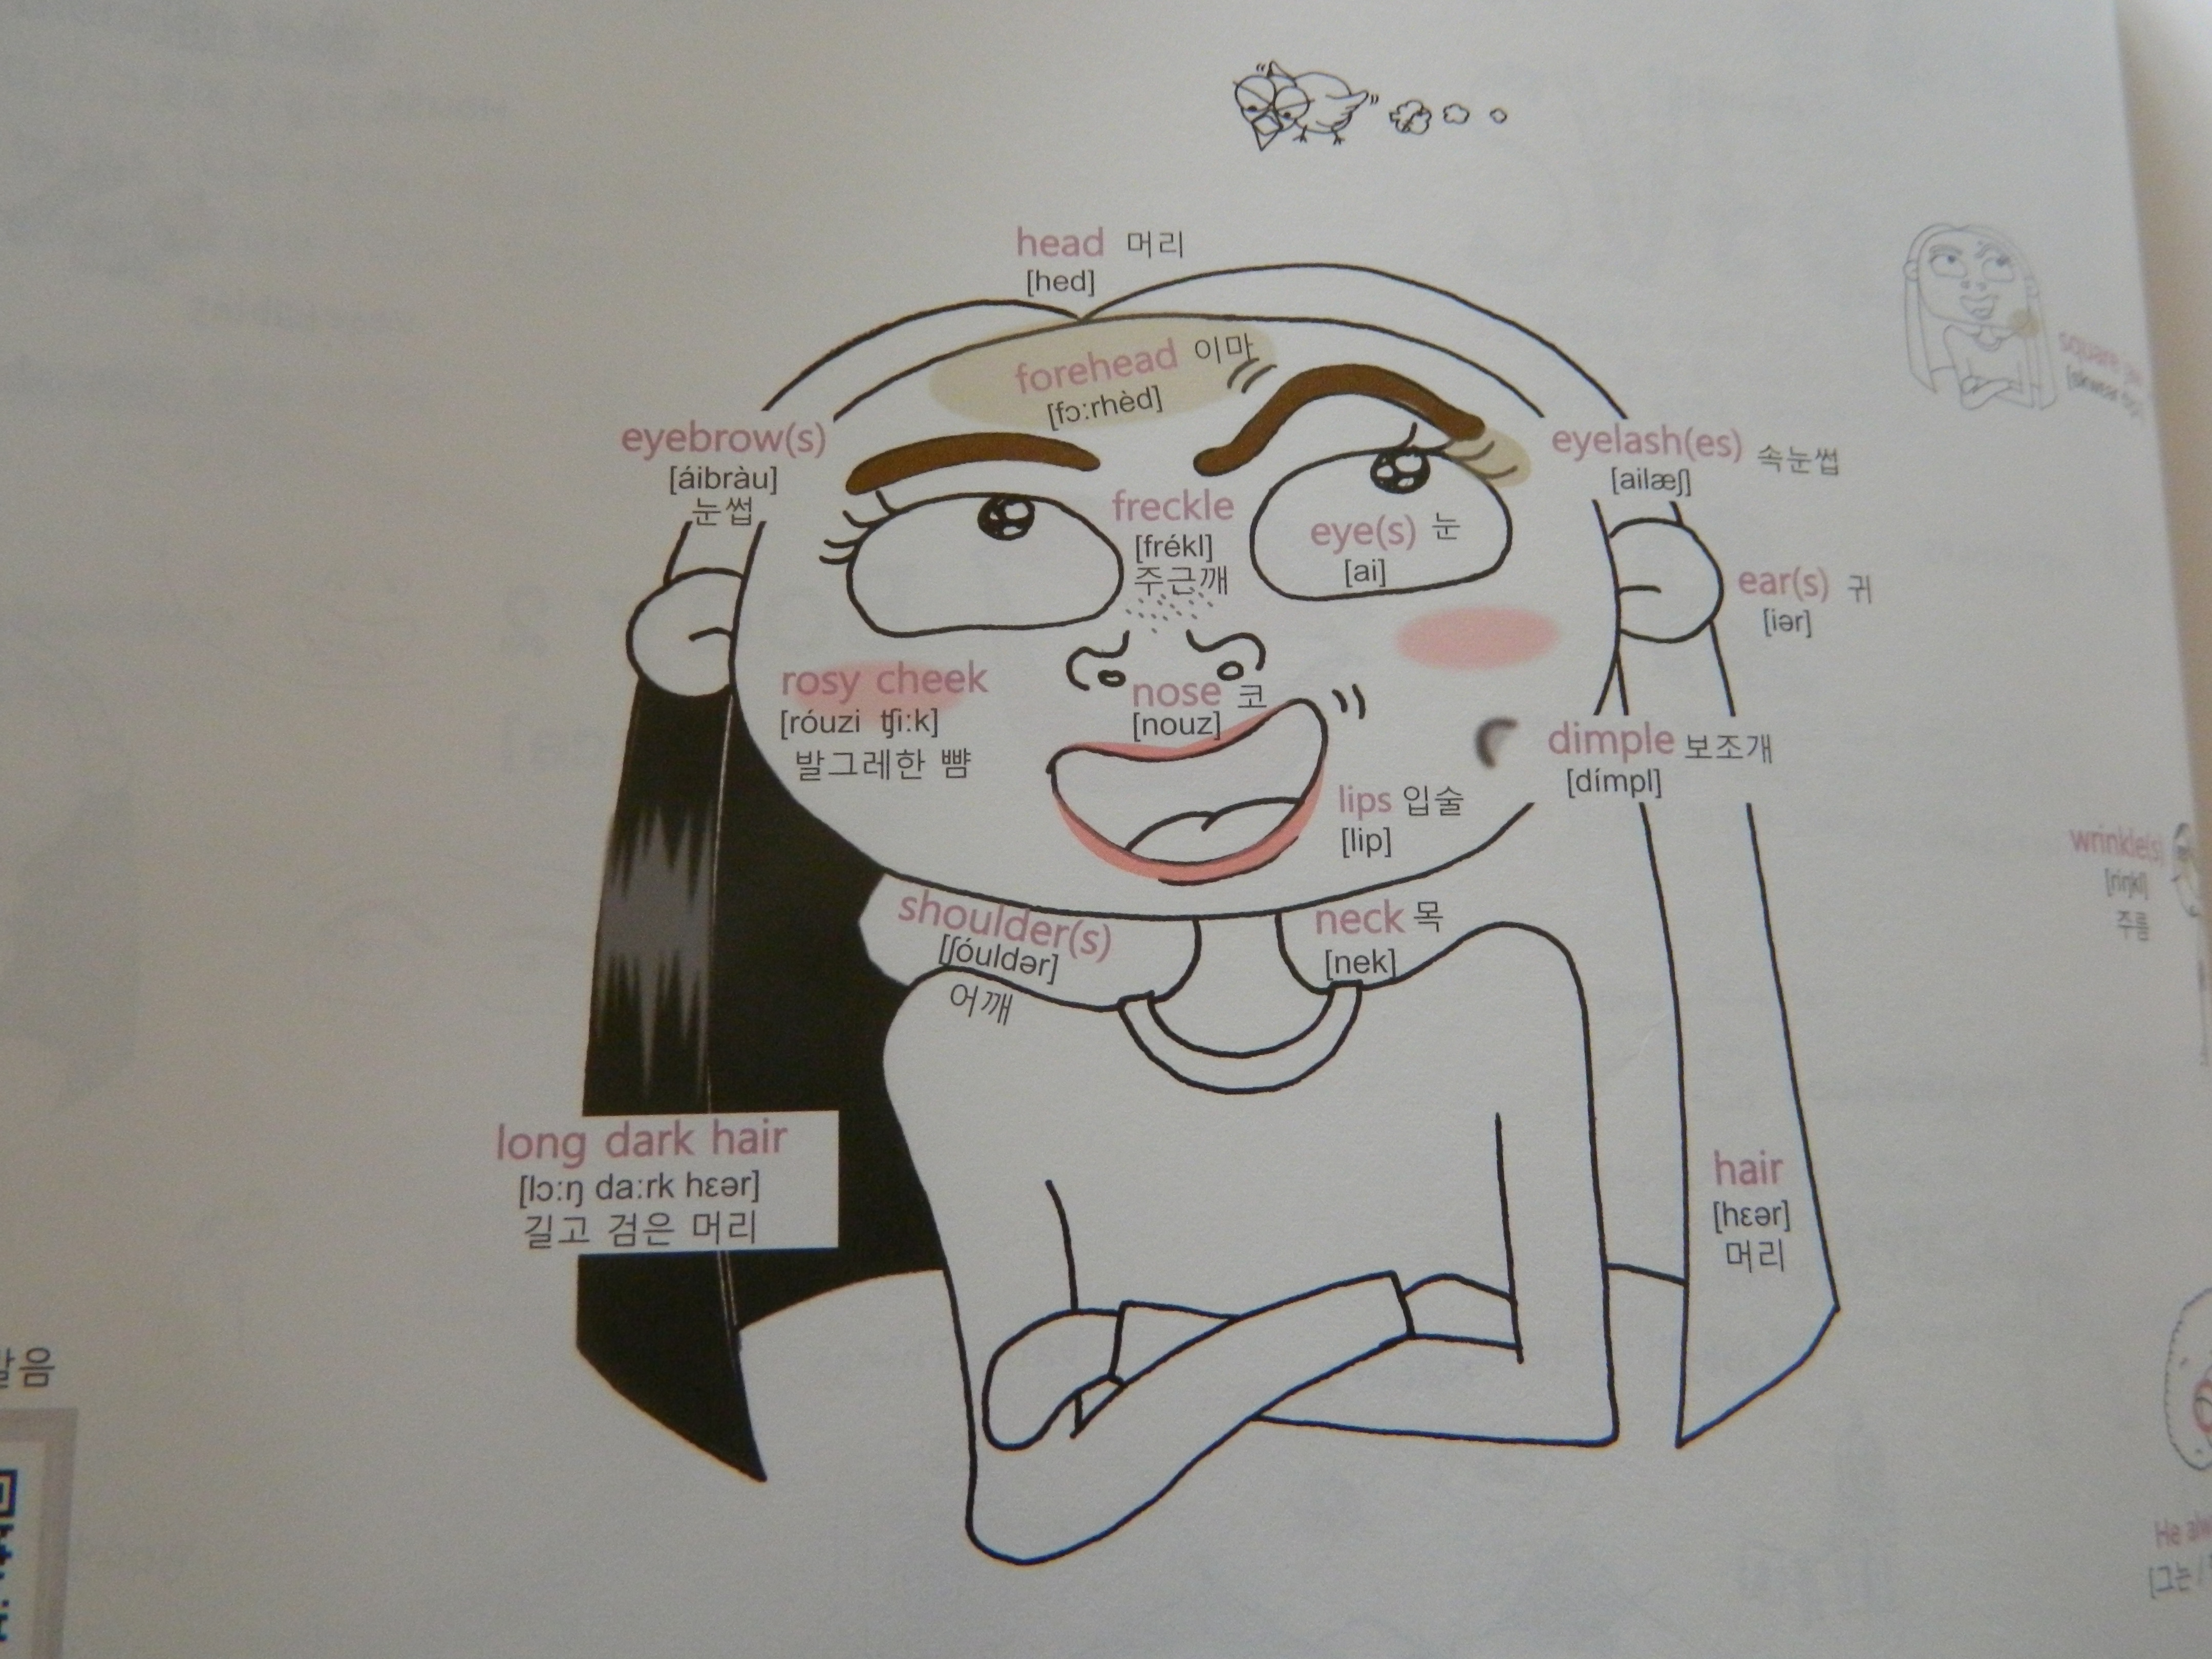 head 머리
[hed]
forehead 이마
[fɔːrhèd]
eyebrow(s)
[áibràu]
눈썹
eyelash(es) 속눈썹
[ailæʃ]
freckle
[frékl]
주근깨
eye(s) 눈
[ai]
ear(s) 귀
[iər]
rosy cheek
[róuzi ʧiːk]
발그레한 뺨
nose 코
[nouz]
dimple 보조개
[dímpl]
lips 입술
[lip]
wrinkle(s)
[riŋkl]
주름
shoulder(s)
[ʃóuldər]
어깨
neck 목
[nek]
long dark hair
[lɔːŋ daːrk hɛər]
길고 검은 머리
hair
[hɛər]
머리
square
He
[그는